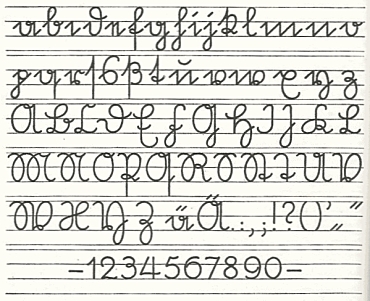 a b c d e f g h i j k l m n o
p q r ſ s ß t ŭ v w x y z
A B C D E F G H I J K L
M N O P Q R S T U V
W X Y Z ä Ä . : , ; ! ? ( ) ' „ “
-1234567890-